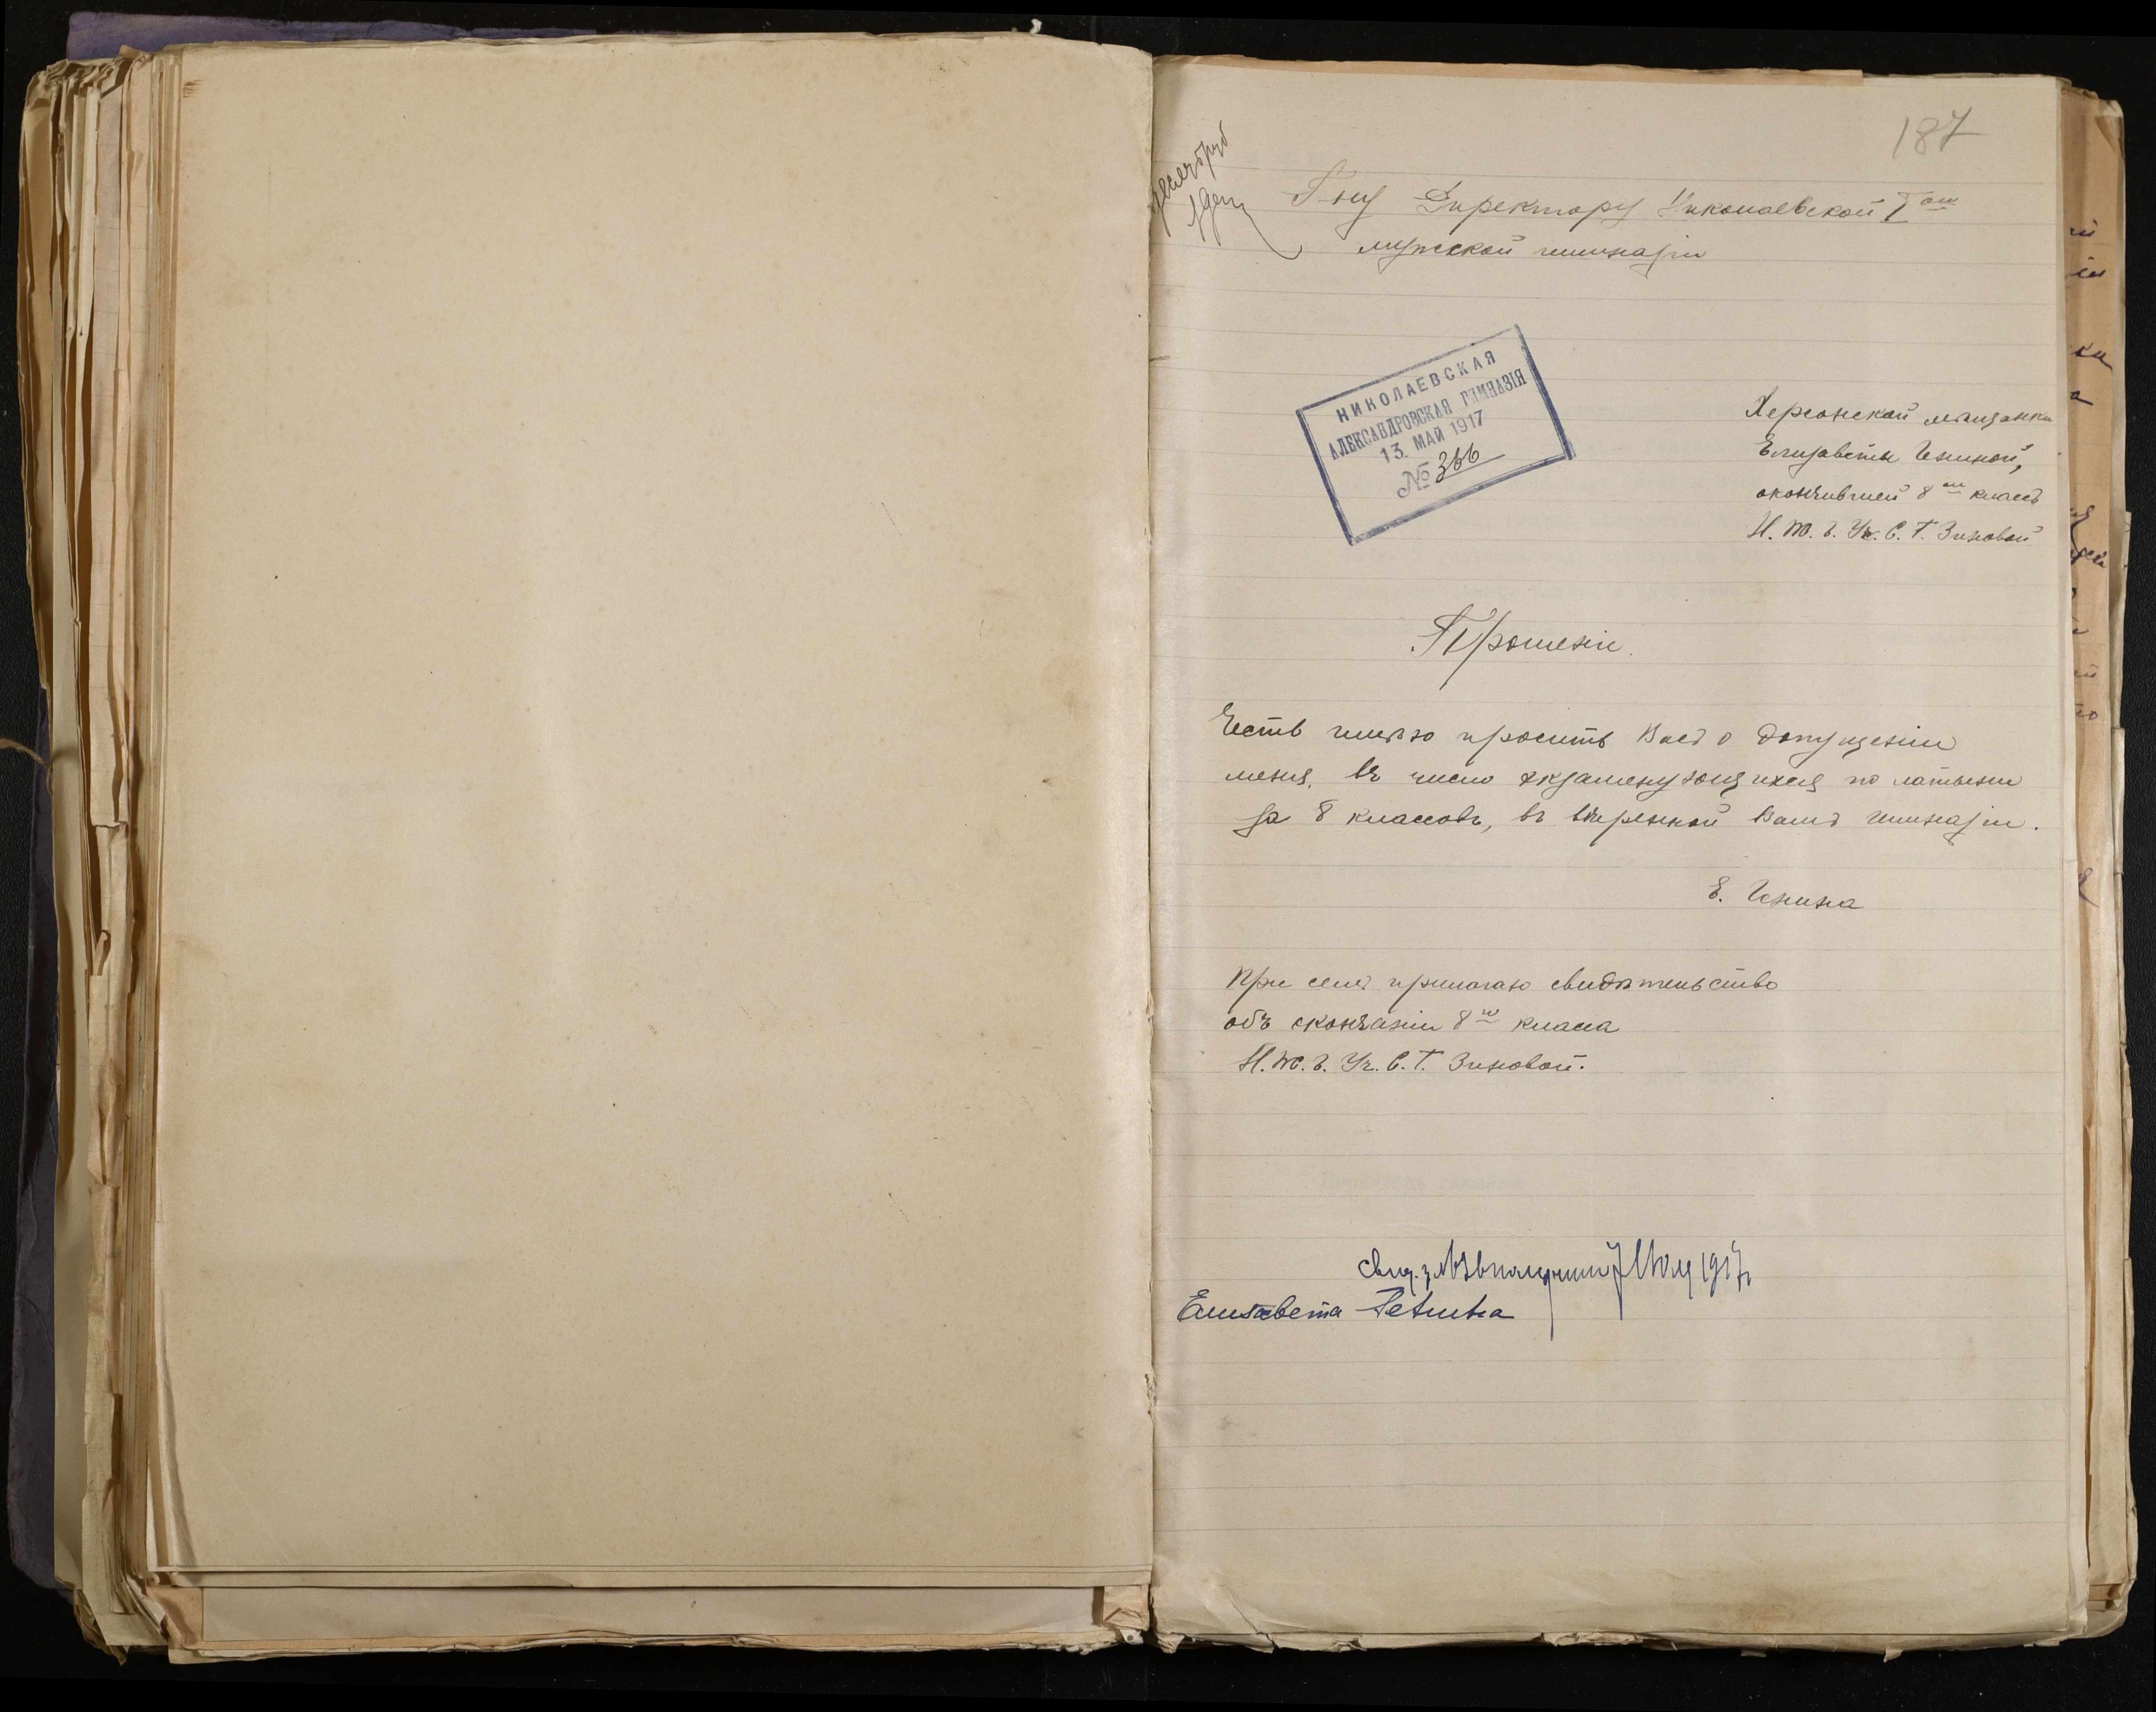 187
Г-ну Директору Николаевской I ой
мужской гимназіи
НИКОЛАЕВСКАЯ
АЛЕКСАНДРОВСКАЯ ГИМНАЗІЯ
13. МАЙ 1917
№ 366
Херсонской мѣщанки
Елизаветы
окончившей 8 ой классъ
Н. Ж. Уч. С. Т. Зиновой
Прошеніе.
Честь имѣю просить Васъ о допущеніи
меня, въ число экзаменующихся по латыни
за 8 классовъ, въ ввѣренной Вамъ гимназіи.
Е.
При семъ прилагаю свидѣтельство
объ окончаніи 8 го класса
Н. Ж. Уч. С. Т. Зиновой.
Мая 1917
Елизавета